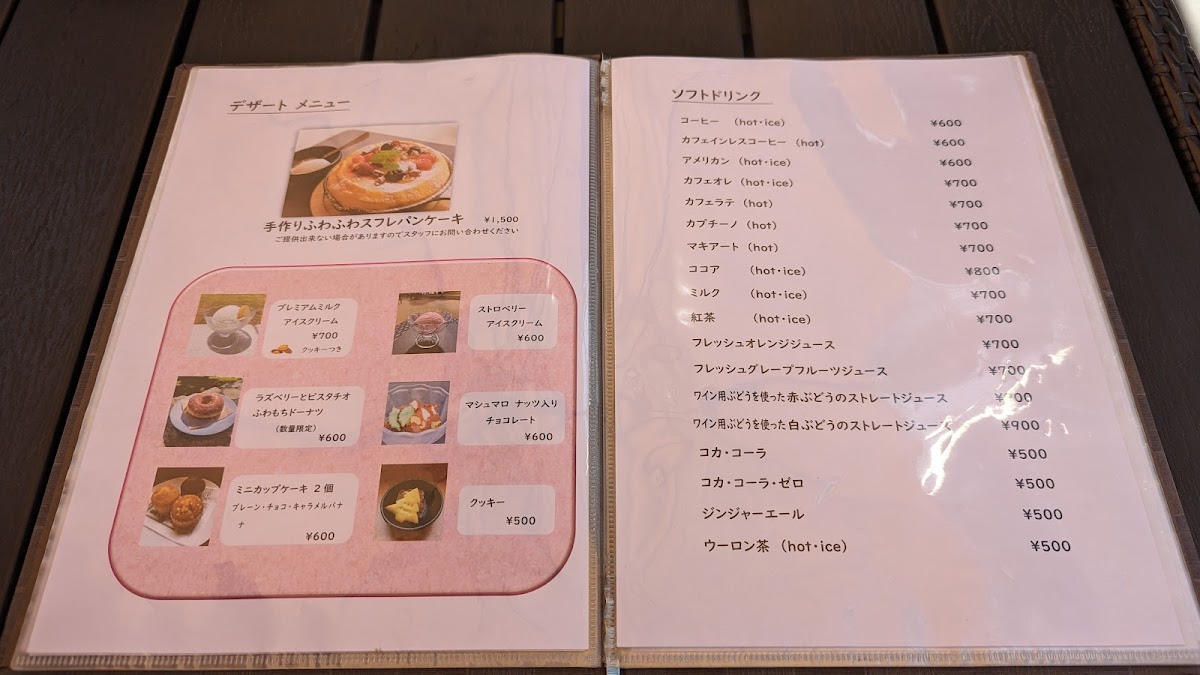 デザート メニュー
手作りふわふわスフレパンケーキ ¥1,500
ご提供出来ない場合がありますのでスタッフにお問い合わせください
プレミアムミルク
アイスクリーム
¥700
クッキーつき
ストロベリー
アイスクリーム
¥600
ラズベリーとピスタチオ
ふわもちドーナツ
(数量限定)
¥600
マシュマロ ナッツ入り
チョコレート
¥600
ミニカップケーキ 2個
プレーン・チョコ・キャラメルバナ
ナ
¥600
クッキー
¥500
ソフトドリンク
コーヒー (hot・ice) ¥600
カフェインレスコーヒー (hot) ¥600
アメリカン (hot・ice) ¥600
カフェオレ (hot・ice) ¥700
カフェラテ (hot) ¥700
カプチーノ (hot) ¥700
マキアート (hot) ¥700
ココア (hot・ice) ¥800
ミルク (hot・ice) ¥700
紅茶 (hot・ice) ¥700
フレッシュオレンジジュース ¥700
フレッシュグレープフルーツジュース ¥700
ワイン用ぶどうを使った赤ぶどうのストレートジュース
ワイン用ぶどうを使った白ぶどうのストレートジュース ¥900
コカ・コーラ ¥500
コカ・コーラ・ゼロ ¥500
ジンジャーエール ¥500
ウーロン茶 (hot・ice) ¥500